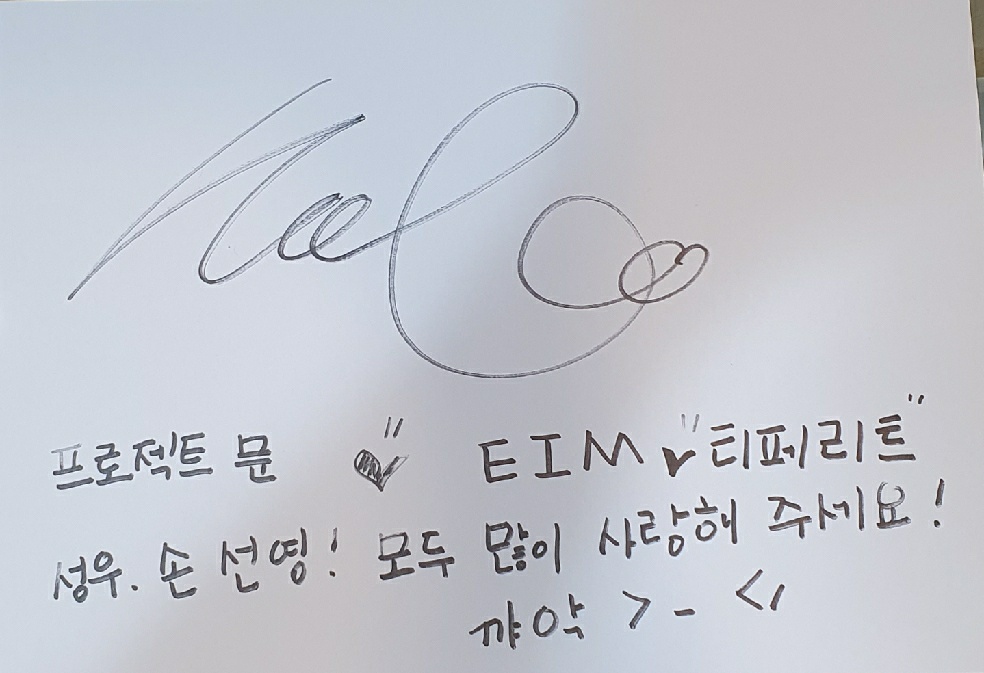 프로젝트 문 ♥" EIM ♥ "티페리트"
성우. 손 선영! 모두 많이 사랑해 주세요!
꺄악 >-<